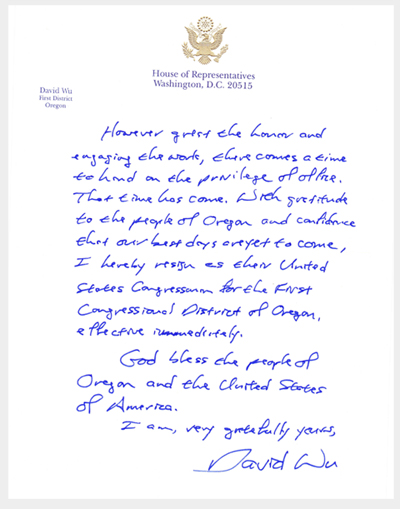 House of Representatives
Washington, D.C. 20515
David Wu
First District
Oregon
However great the honor and
engaging the work, there comes a time
to hand on the privilege of office.
That time has come. With gratitude
to the people of Oregon and confidence
that our best days are yet to come,
I hereby resign as their United
States Congressman for the First
Congressional District of Oregon,
effective immediately.
God bless the people of
Oregon and the United States
of America.
I am, very gratefully yours,
David Wu